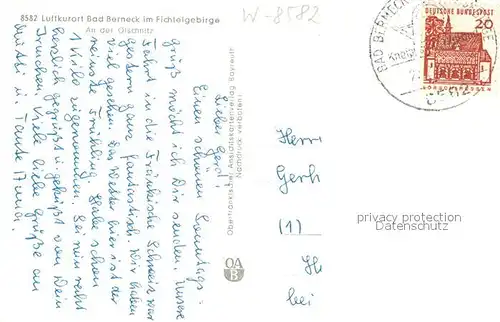 8582 Luftkurort Bad Berneck im Fichtelgebirge
An der Ölschnitz
W-8582
Lieber Gerd!
Einen schönen Sonntags-
gruß möcht ich Dir senden. Unsere
Fahrt in die Fränkische Schweiz war
gestern ganz fantastisch. Wir haben
viel gesehen. Das Wetter hier ist der
reinste Frühling. Habe schon
1 Kilo zugenommen. Sei nun recht
herzlich gegrüßt u. geküßt von Dein
Viele liebe Grüße an
Mutti u. Tante Anna.
Oberfränkischer Ansichtskartenverlag Bayreuth
Nachdruck verboten!
OA
B
BAD BERNECK
DEUTSCHE BUNDESPOST
20
LORSCH HESSEN
Herr
Gerh
(1)
bei
privacy protection
Datenschutz